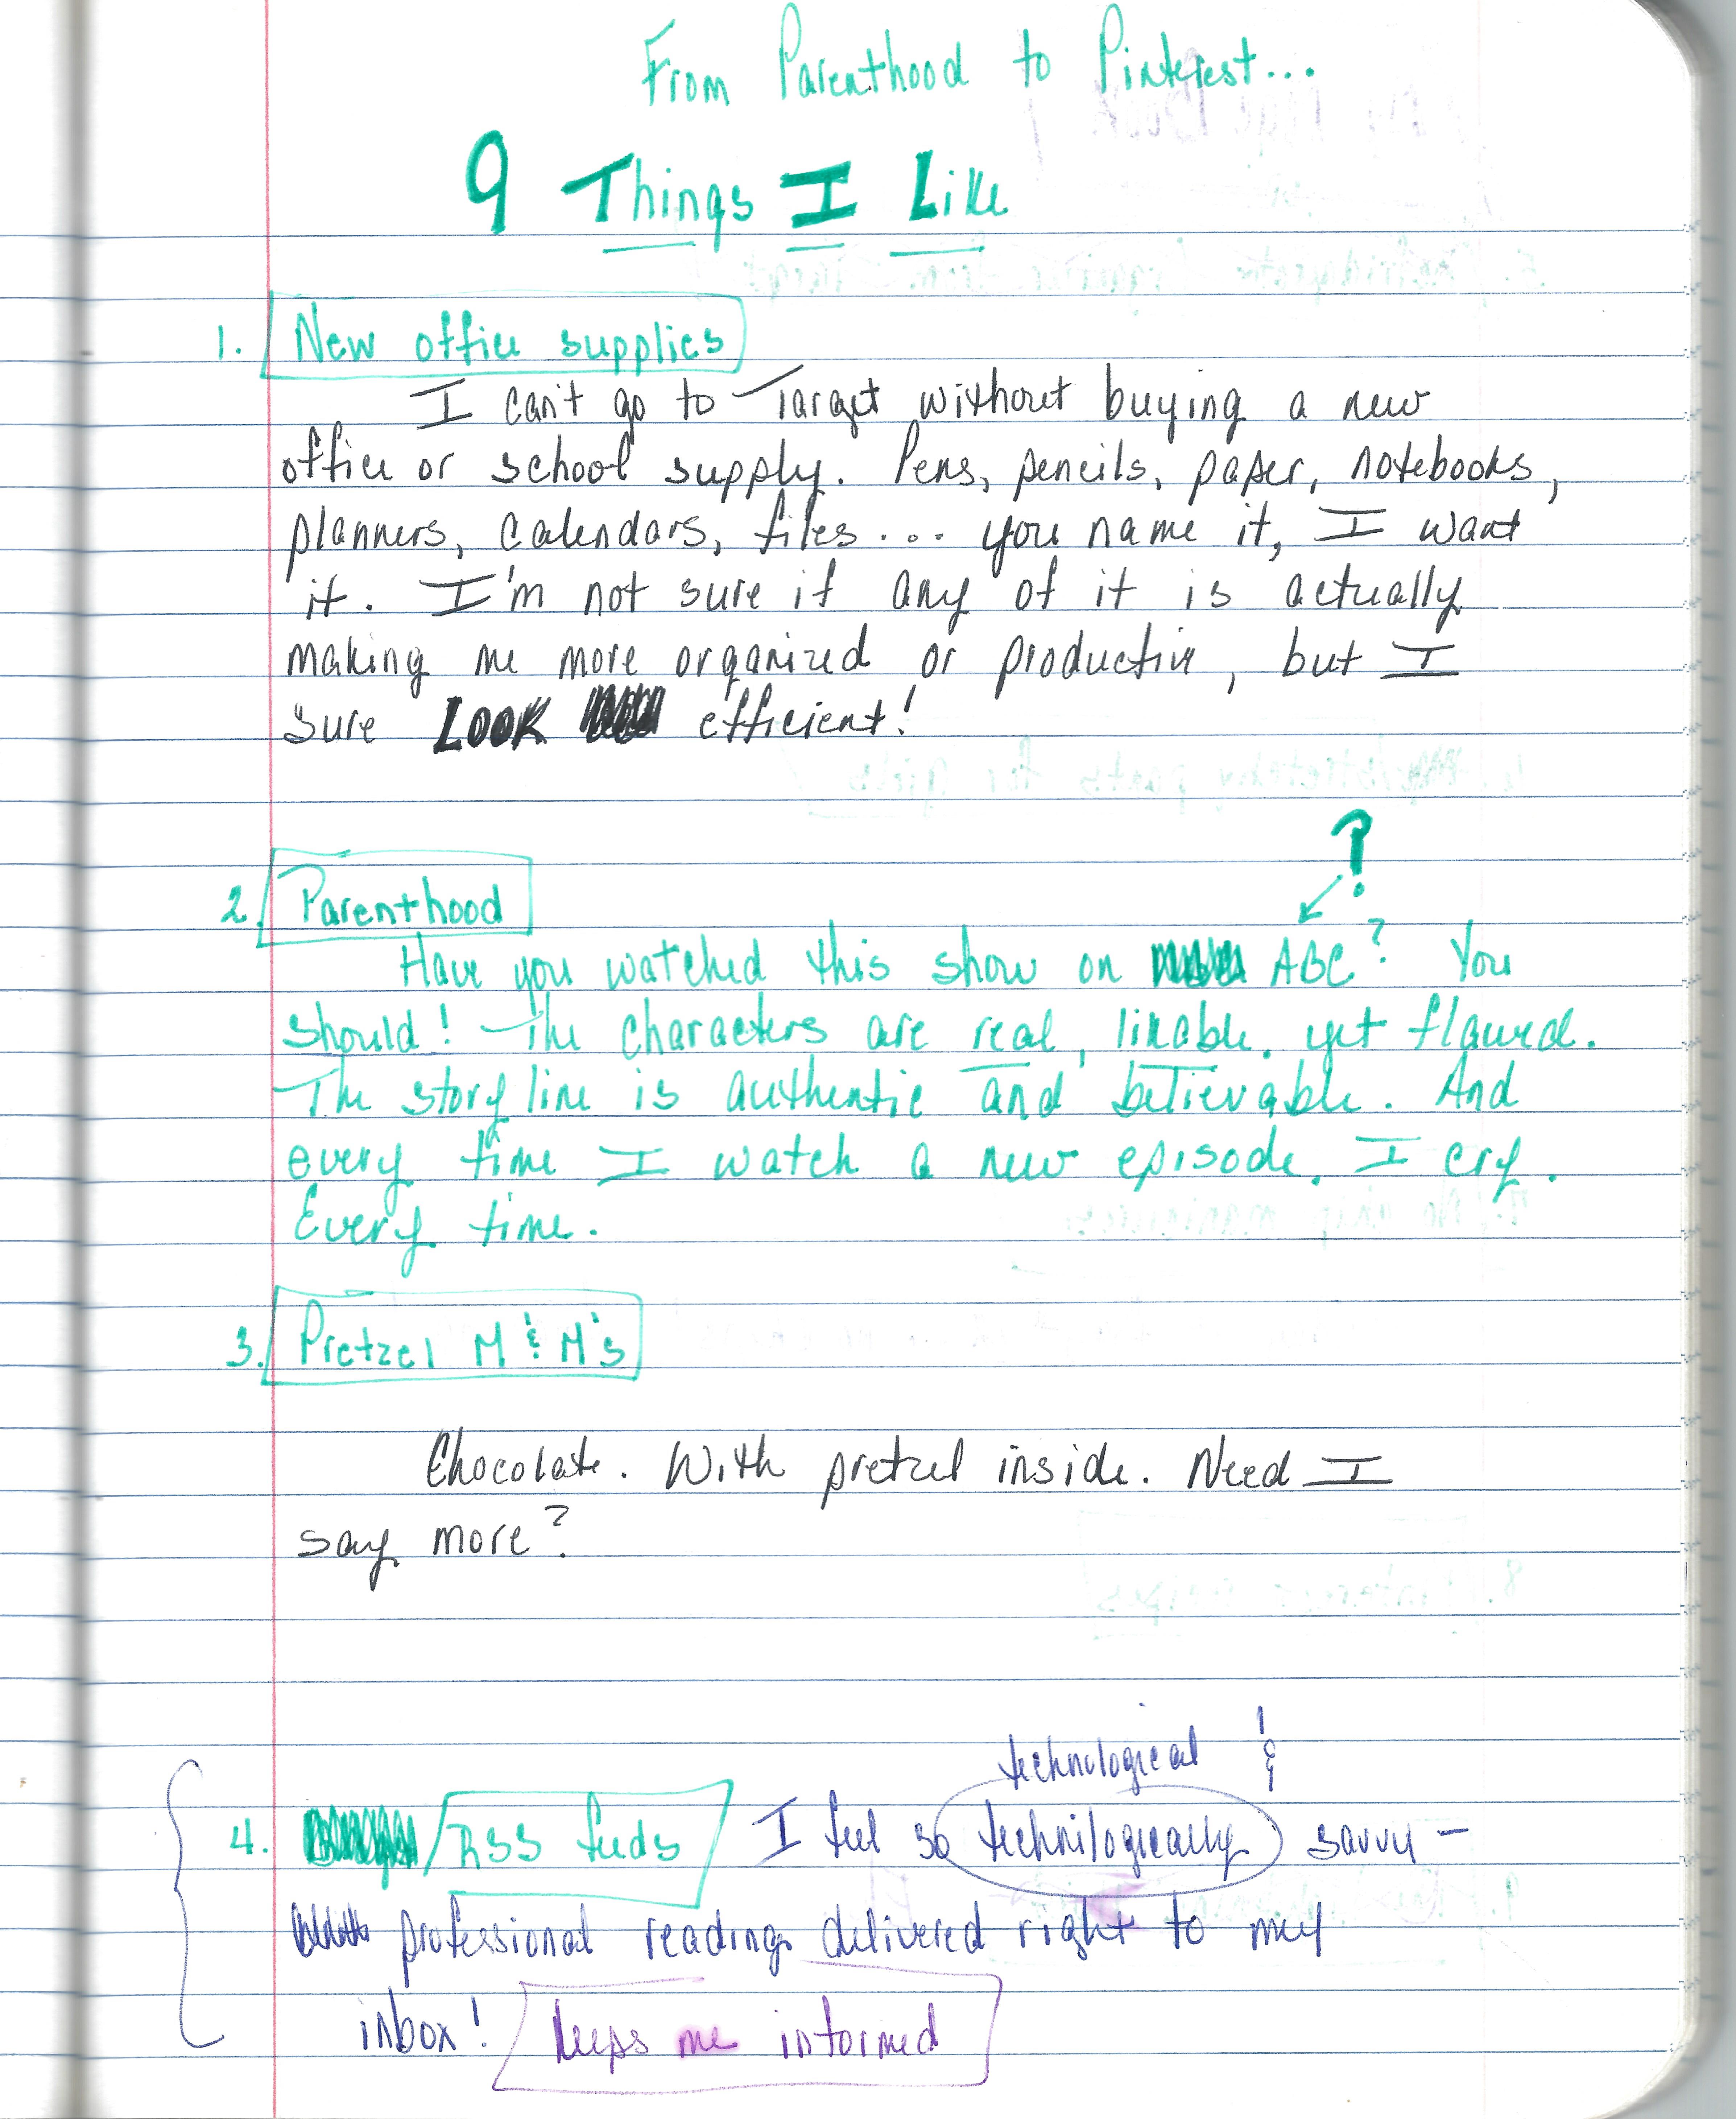 From Parenthood to Pinterest...
9 Things I Like
1. New office supplies
I can't go to Target without buying a new
office or school supply. Pens, pencils, paper, notebooks,
planners, calendars, files... you name it, I want
it. I'm not sure if any of it is actually
making me more organized or productive, but I
sure LOOK efficient!
?
2. Parenthood
Have you watched this show on ABC? You
should! The characters are real, likable, yet flawed.
The story line is authentic and believable. And
every time I watch a new episode, I cry.
Every time.
3. Pretzel M & M's
Chocolate. With pretzel inside. Need I
say more?
technological &
4. RSS feeds I feel so technilogically savvy -
professional reading delivered right to my
inbox! keeps me informed